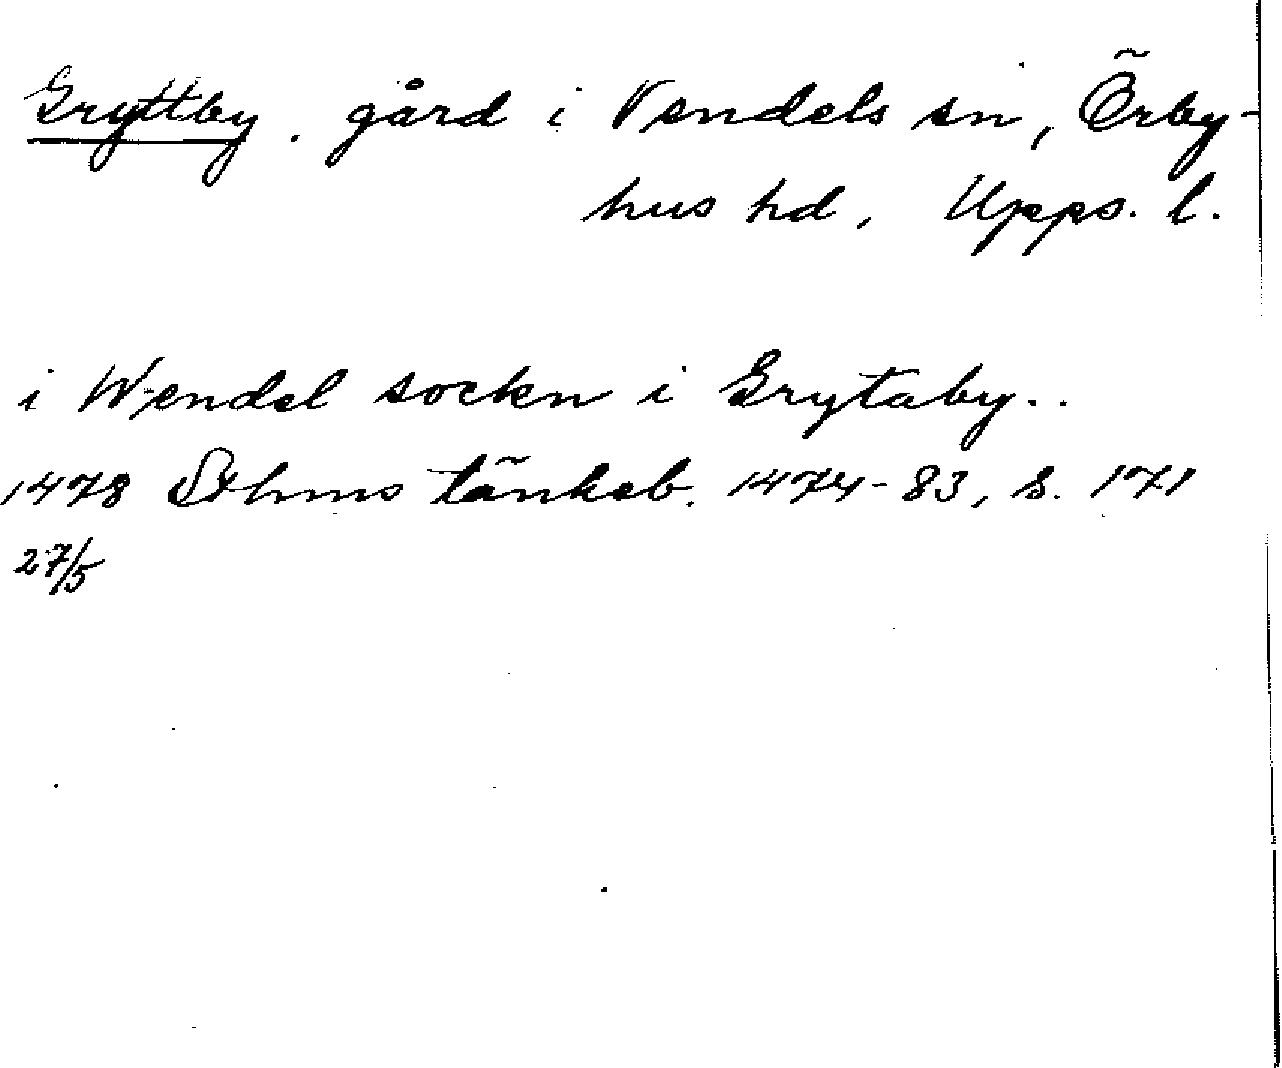 Gryttby. gård i Vendels sn, Örby-
hus hd, Upps. l.
i Wendel sockn i Grytaby..
1478 Sthms tänkeb. 1474-83, s. 171
27/5